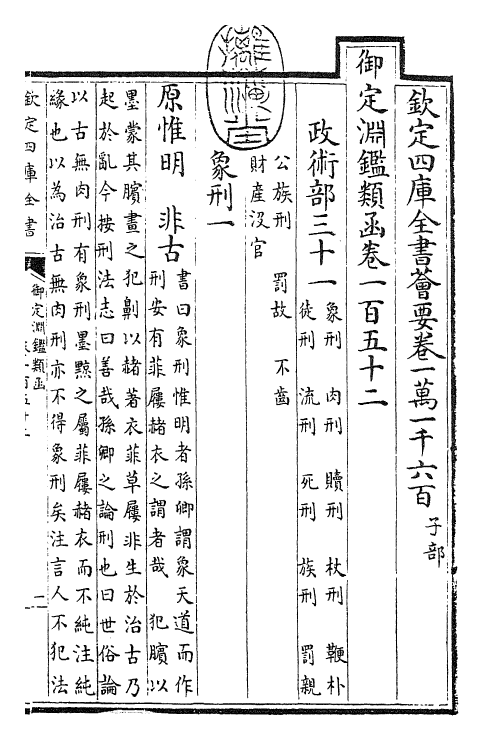 摛藻堂
欽定四庫全書薈要卷一萬一千六百 子部
御定淵鑑類函卷一百五十二
政術部三十一
象刑 肉刑 贖刑 杖刑 鞭朴
徒刑 流刑 死刑 族刑 罰親
公族刑 罰故 不齒
財産沒官
象刑一
原惟明 非古
書曰象刑惟明者孫卿謂象天道而作
刑安有菲屨赭衣之謂者哉 犯臏以
墨蒙其臏畫之犯劓以赭著衣菲草屨非生於治古乃
起於亂今按刑法志曰善哉孫卿之論刑也曰世俗論
以古無肉刑有象刑墨黥之屬菲屨赭衣而不純注純
緣也以為治古無肉刑亦不得象刑矣注言人不犯法
欽定四庫全書
御定淵鑑類函
卷一百五十二
一